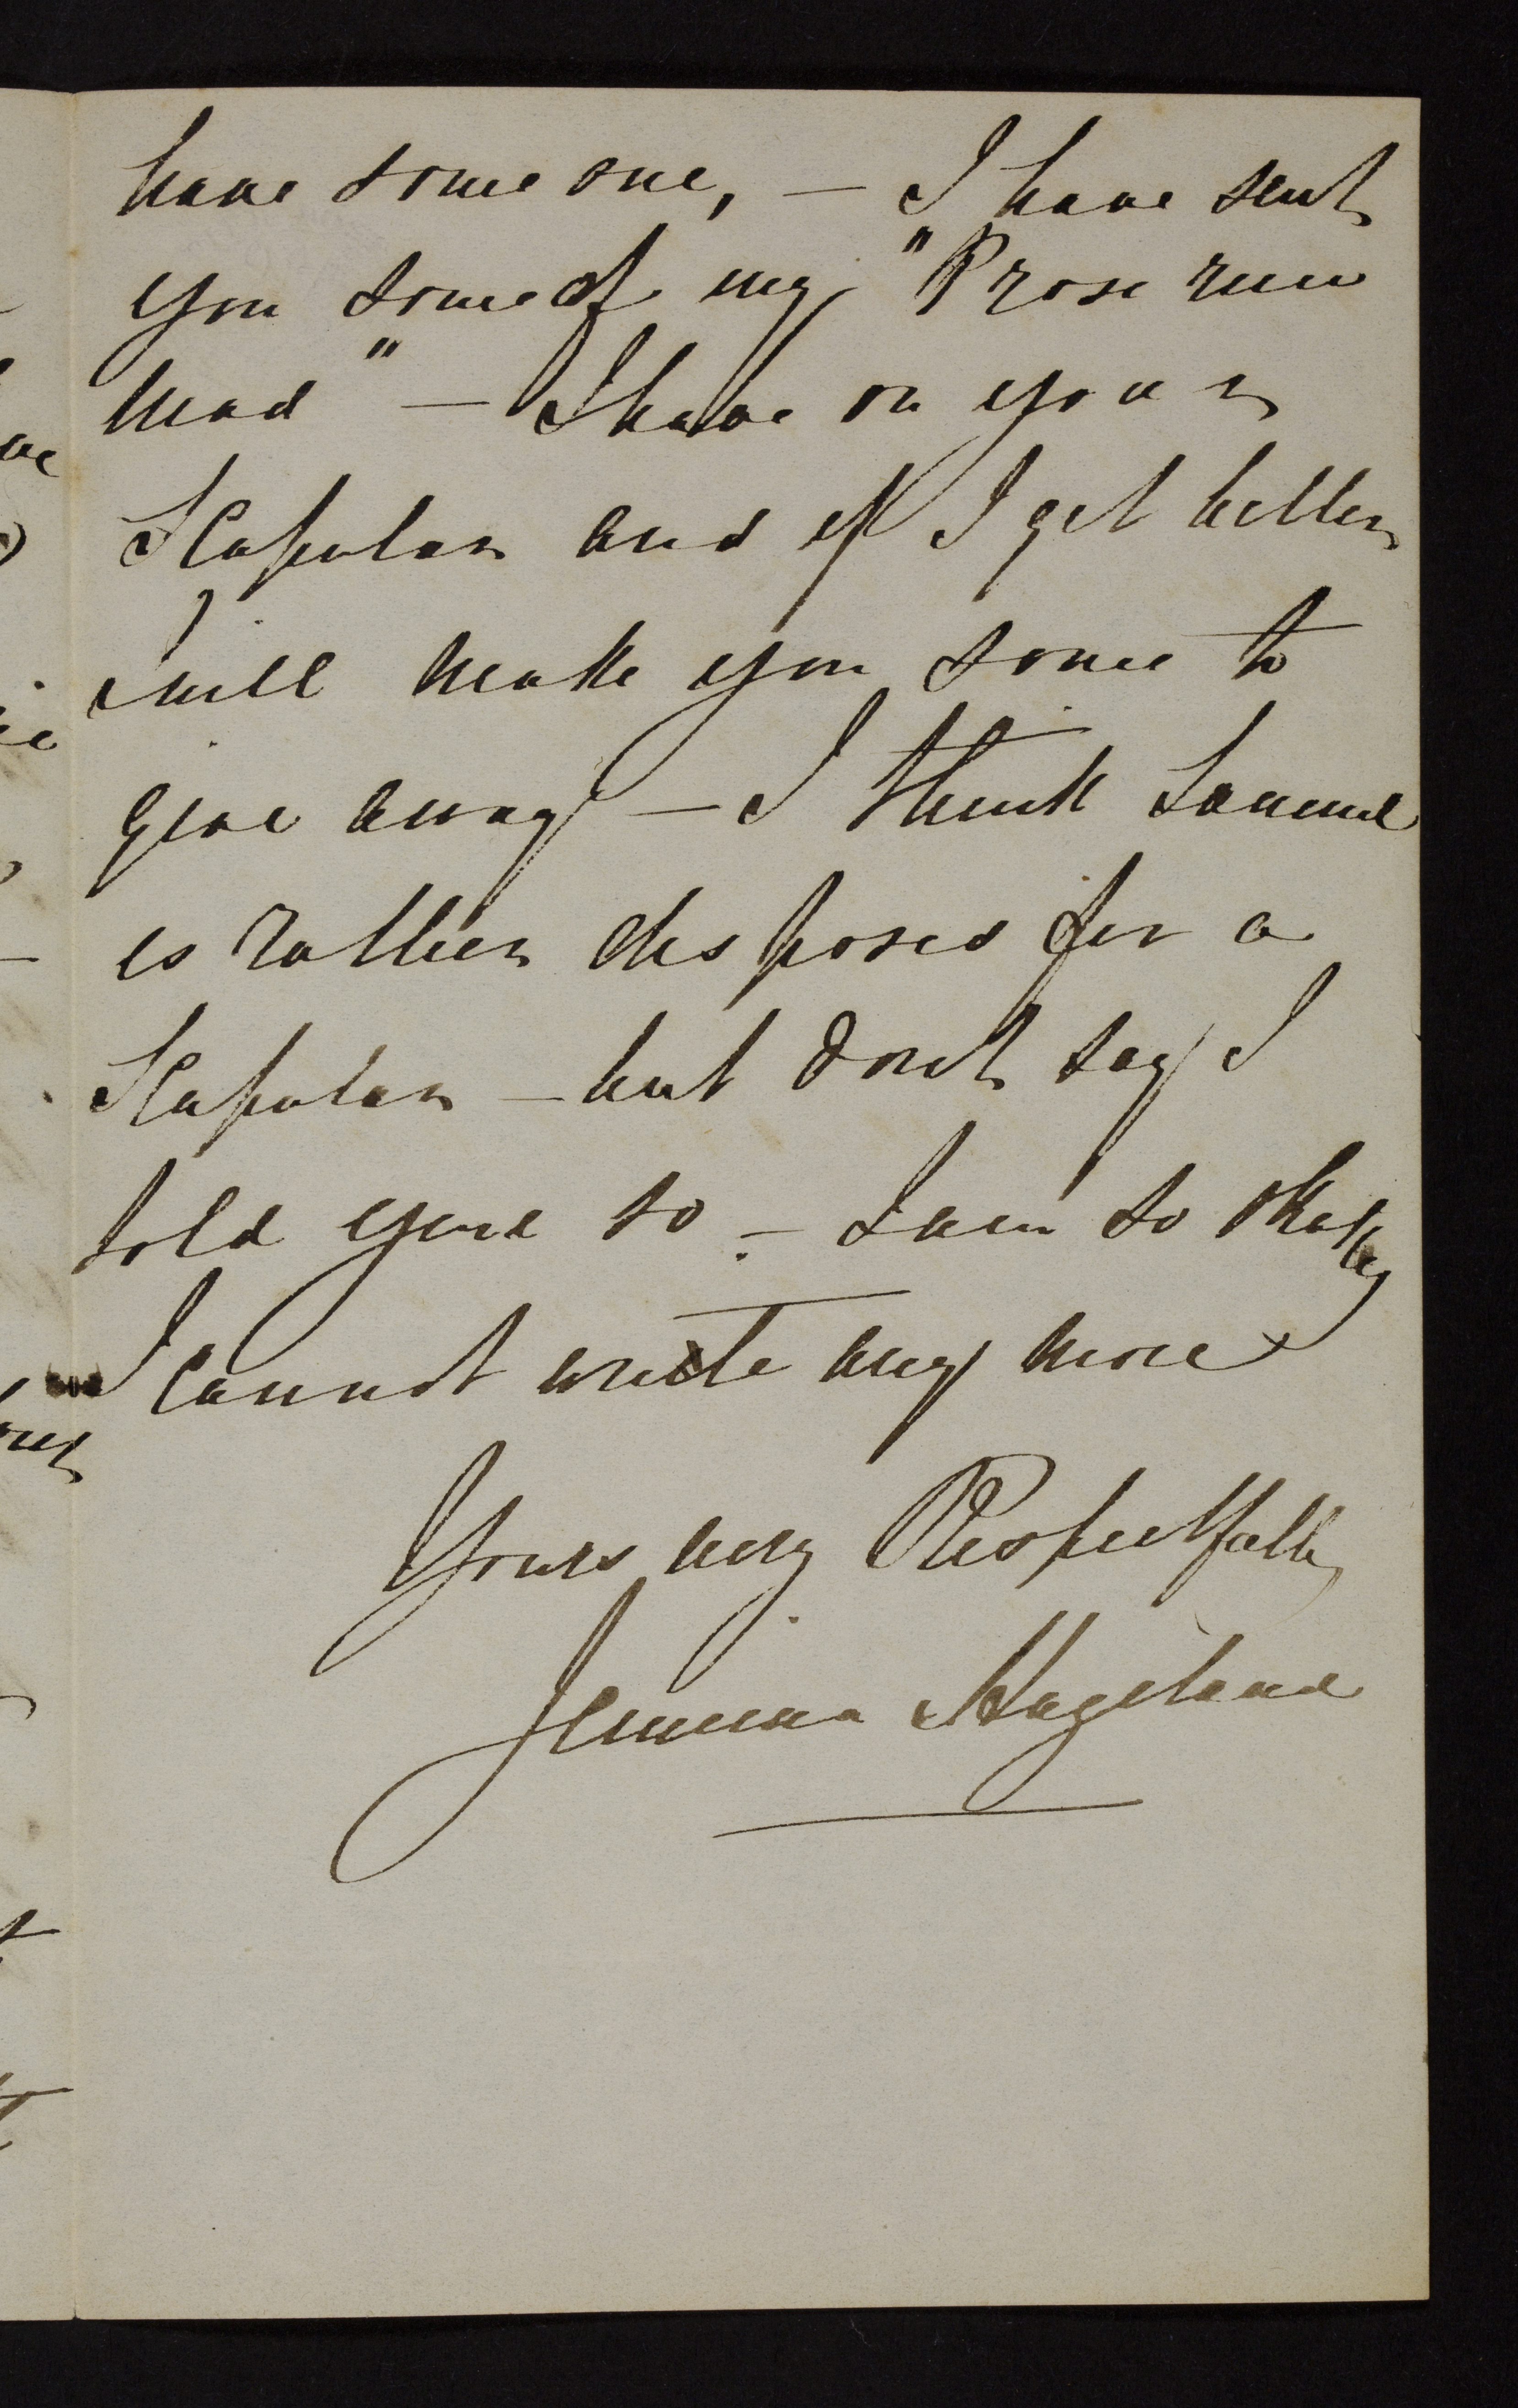 have some one, — I have sent
you some of my "Prose run
mad" — I have on your
Scapular and if I get better
will make you some to
give away — I think Samuel
is rather disposed for a
Scapular — but don't say I
told you so — I am so shaky
I cannot write any more
Yours very Respectfully
Jemima